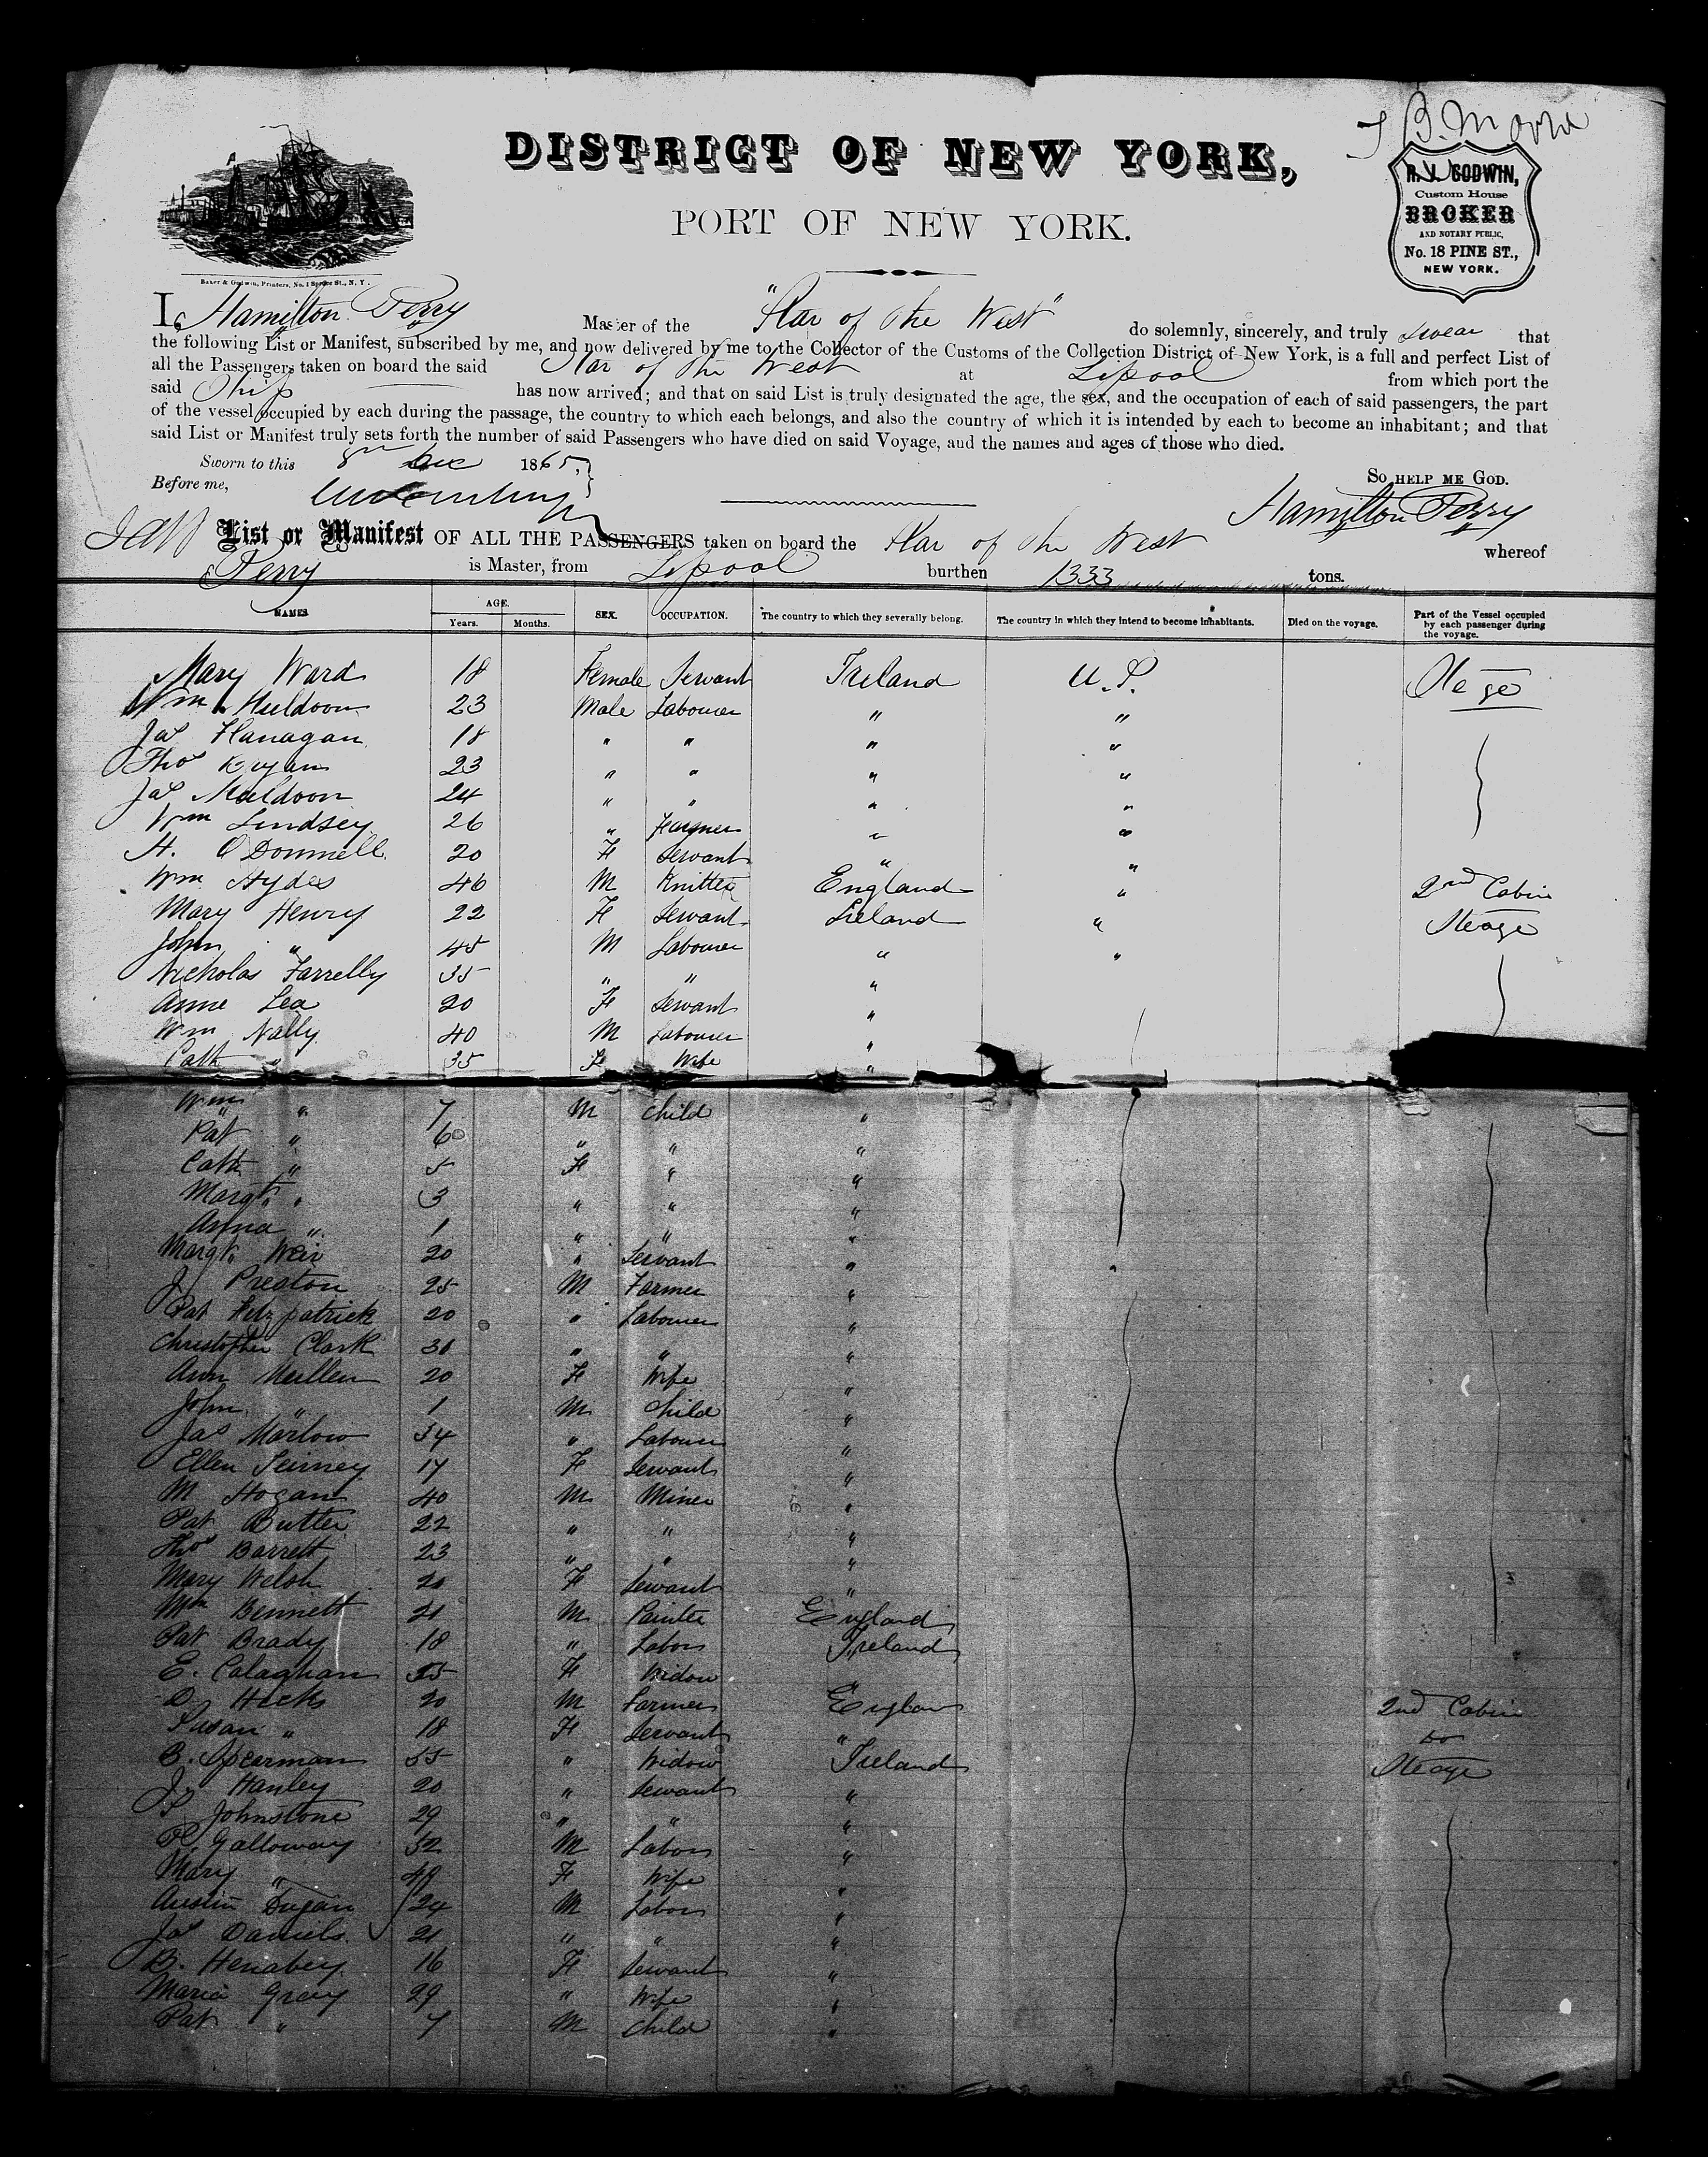 J B. Moore
DISTRICT OF NEW YORK,
PORT OF NEW YORK.
R. J. GODWIN,
Custom House
BROKER
AND NOTARY PUBLIC,
No. 18 PINE ST.,
NEW YORK.
Baker & Godwin, Printers, No. 1 Spruce St., N. Y.
I, Hamilton Perry Master of the "Star of the West" do solemnly, sincerely, and truly swear that
the following List or Manifest, subscribed by me, and now delivered by me to the Collector of the Customs of the Collection District of New York, is a full and perfect List of
all the Passengers taken on board the said Star of the West at Lpool from which port the
said Ship has now arrived; and that on said List is truly designated the age, the sex, and the occupation of each of said passengers, the part
of the vessel occupied by each during the passage, the country to which each belongs, and also the country of which it is intended by each to become an inhabitant; and that
said List or Manifest truly sets forth the number of said Passengers who have died on said Voyage, and the names and ages of those who died.
Sworn to this 8th Dec 1865,
Before me,
SO HELP ME GOD.
Hamilton Perry
List or Manifest OF ALL THE PASSENGERS taken on board the Star of the West whereof
Perry is Master, from Lpool burthen 1333 tons.
NAMES AGE. Years. Months. SEX. OCCUPATION. The country to which they severally belong. The country in which they intend to become inhabitants. Died on the voyage. Part of the Vessel occupied by each passenger during the voyage.
Mary Ward 18 Female Servant Ireland U.S. Ste ge
Wm Muldoon 23 Male Labourer " "
Jas Flanagan 18 " " " "
Thos 23 " " " "
Jas Muldoon 24 " " " "
Wm Lindsey 26 " Farmer " "
H. O'Donnell 20 F Servant " "
Wm Hydes 46 M Knitter England " 2nd Cabin
Mary Henry 22 F Servant Ireland " Steage
John " 45 M Labourer " "
Nicholas Farrelly 35 " " "
Anne Lea 20 F Servant "
Wm Nally 40 M Labourer "
Cath " 35 F Wife "
Wm " 7 M Child "
Pat " 6 " " "
Cath " 5 F " "
Margt " 3 " " "
Anna " 1 " " "
Margt Weir 20 " Servant "
J Preston 25 M Farmer "
Pat Fitzpatrick 20 " Labourer "
Christopher Clark 30 " " "
Ann Mullen 20 F Wife "
John " 1 M Child "
Jas Marlow 34 " Labourer "
Ellen 17 F Servant "
M Hogan 40 M Miner "
Pat Butler 22 " " "
Thos Barrett 23 " " "
Mary Welsh 20 F Servant "
Wm Bennett 21 M Painter England
Pat Brady 18 " Labor Ireland
E. Calaghan 55 F Widow "
D. Hicks 20 M Farmer Englan 2nd Cabin
Susan " 18 F Servant " do
B. Speerman 55 " Widow Ireland Steage
J. Hanley 20 " Servant "
S Johnstone 29 " " "
P. Galloway 52 M Labor "
Mary " 48 F Wife "
Austin Dugan 24 M Labor "
Jas Daniels 21 " " "
B. Henabey 16 F Servant "
Maria Gray 29 " Wife "
Pat " 7 M Child "